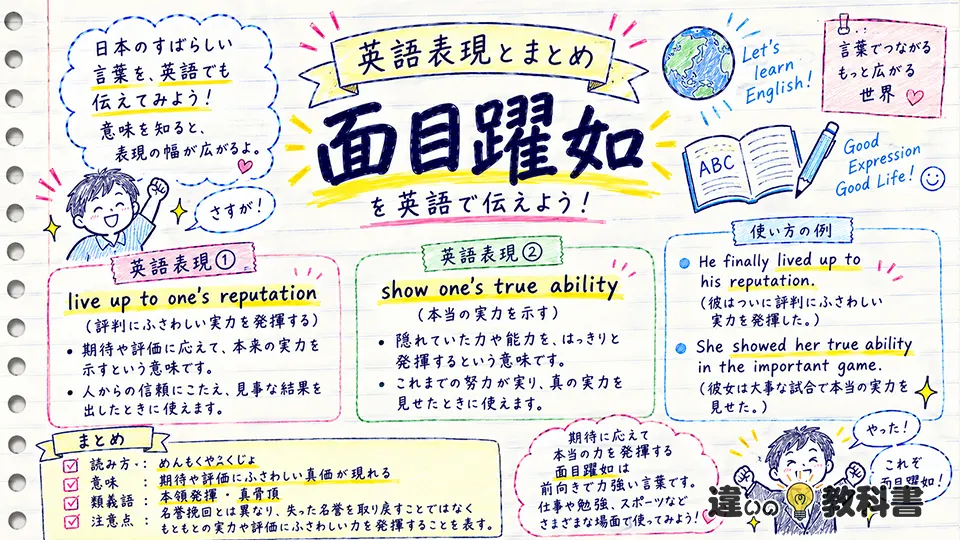 日本のすばらしい
言葉を、英語でも
伝えてみよう!
意味を知ると、
表現の幅が広がるよ。
さすが!
英語表現とまとめ
面目躍如
を英語で伝えよう!
Let's
learn
English!
言葉でつながる
もっと広がる
世界
ABC
Good
Expression
Good Life!
英語表現①
live up to one's reputation
(評判にふさわしい実力を発揮する)
• 期待や評価に応えて、本来の実力を
示すという意味です。
• 人からの信頼にこたえ、見事な結果を
出したときに使えます。
英語表現②
show one's true ability
(本当の実力を示す)
• 隠れていた力や能力を、はっきりと
発揮するという意味です。
• これまでの努力が実り、真の実力を
見せたときに使えます。
使い方の例
He finally lived up to
his reputation.
(彼はついに評判にふさわしい
実力を発揮した。)
She showed her true ability
in the important game.
(彼女は大事な試合で本当の実力を
見せた。)
まとめ
読み方: めんもくやくじょ
意味: 期待や評価にふさわしい真価が現れる
類義語: 本領発揮・真骨頂
注意点: 名誉挽回とは異なり、失った名誉を取り戻すことではなく
もともとの実力や評価にふさわしい力を発揮することを表す。
期待に応えて
本当の力を発揮する
面目躍如は
前向きで力強い言葉です。
仕事や勉強、スポーツなど
さまざまな場面で使ってみよう!
やった!
これぞ
面目躍如!
違いの教科書